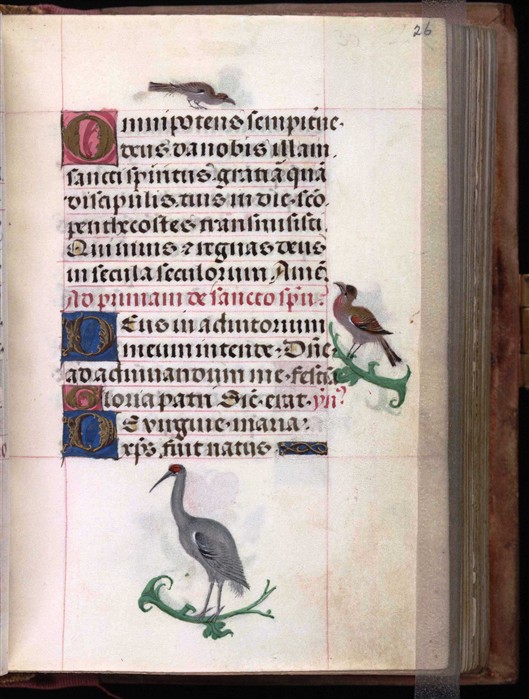 26
Omnipotens sempitērne·
deus da nobis illam
sancti spiritus gratiā quā
discipulis tuis in die scō
penthecostes transmisisti.
Qui uiuis ⁊ regnas deus
in secula seculorum Amē.
Ad primam de sancto spū:
Deus in adiutorium
meum intende· Dn̄e
ad adiuuandum me festīa
Gloria patri Sic̄ erat· yn̄?
De virgine maria·
xp̄s fuit natus